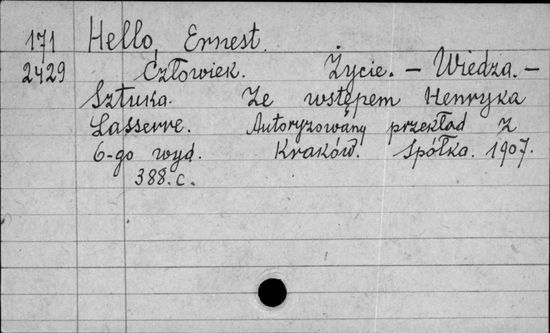 171 Hello, Ernest.
2429 Człowiek. Życie. – Wiedza. –
Sztuka. Ze wstępem Henryka
Lasserre. Autoryzowany przekład z
6-go wyd. Kraków. Spółka. 1907.
388. c.